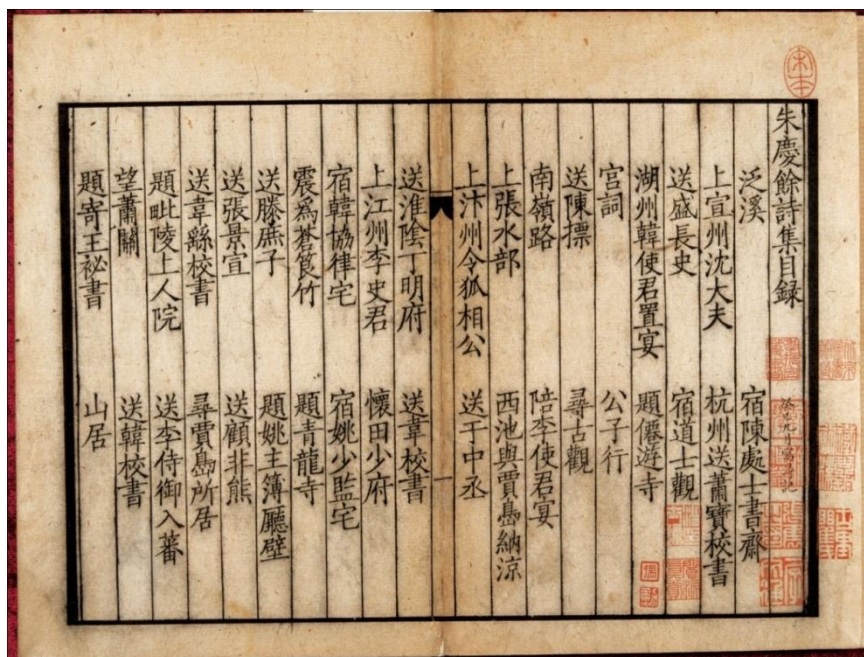 朱慶餘詩集目錄
泛溪 宿陳處士書齋
上宣州沈大夫 杭州送蕭寶校書
送盛長史 宿道士觀
湖州韓使君置宴 題僊遊寺
宮詞 公子行
送陳摽 尋古觀
南嶺路 陪李使君宴
上張水部 西池與賈島納涼
上汴州令狐相公 送于中丞
一
送淮陰丁明府 送韋校書
上江州李史君 懷田少府
宿韓協律宅 宿姚少監宅
震爲蒼筤竹 題青龍寺
送滕庶子 題姚主簿廳壁
送張景宣 送顧非熊
送韋繇校書 尋賈島所居
題毗陵上人院 送李侍御入蕃
望蕭關 送韓校書
題寄王祕書 山居